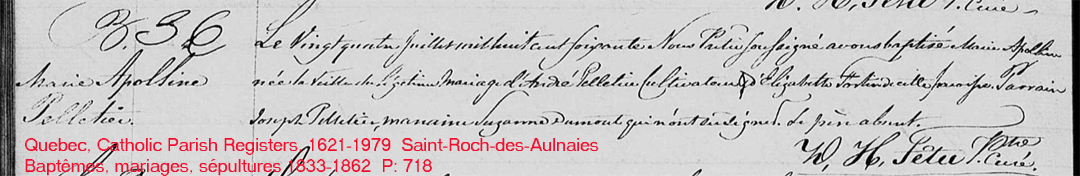 W, H, Têtu P. Curé
B. 36
Marie Apolline
Pelletier.
Le Vingt quatre Juillet mil huit cent soixante Nous Prêtre soussigné avons baptisé Marie Apolline
née la veille du légitime mariage d'André Pelletier Cultivateur & d'Elizabeth Fortin de cette paroisse. Parrain
Joseph Pelletier, marraine Suzanne Dumont qui n'ont su signer. Le père absent.
W, H, Têtu Ptre
Curé.
Quebec, Catholic Parish Registers, 1621-1979 Saint-Roch-des-Aulnaies
Baptêmes, mariages, sépultures 1833-1862 P: 718